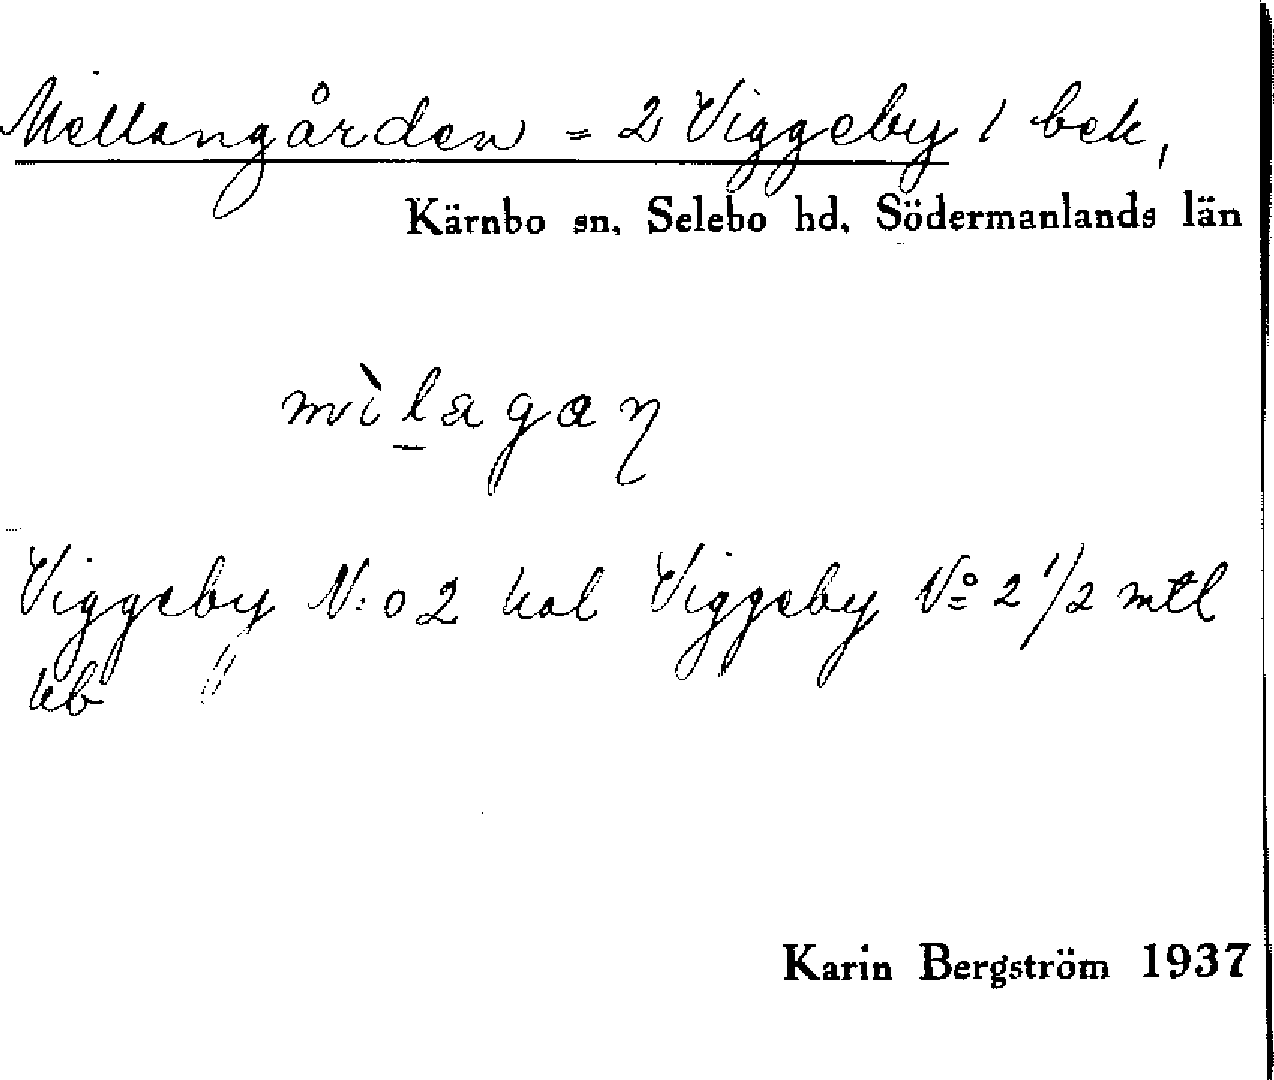 Mellangården = 2 Viggeby / bek,
Kärnbo sn. Selebo hd. Södermanlands län
mìlagaŋ
Viggeby N:o 2 kal Viggeby Nº 2 1/2 mtl
kb "
Karin Bergström 1937